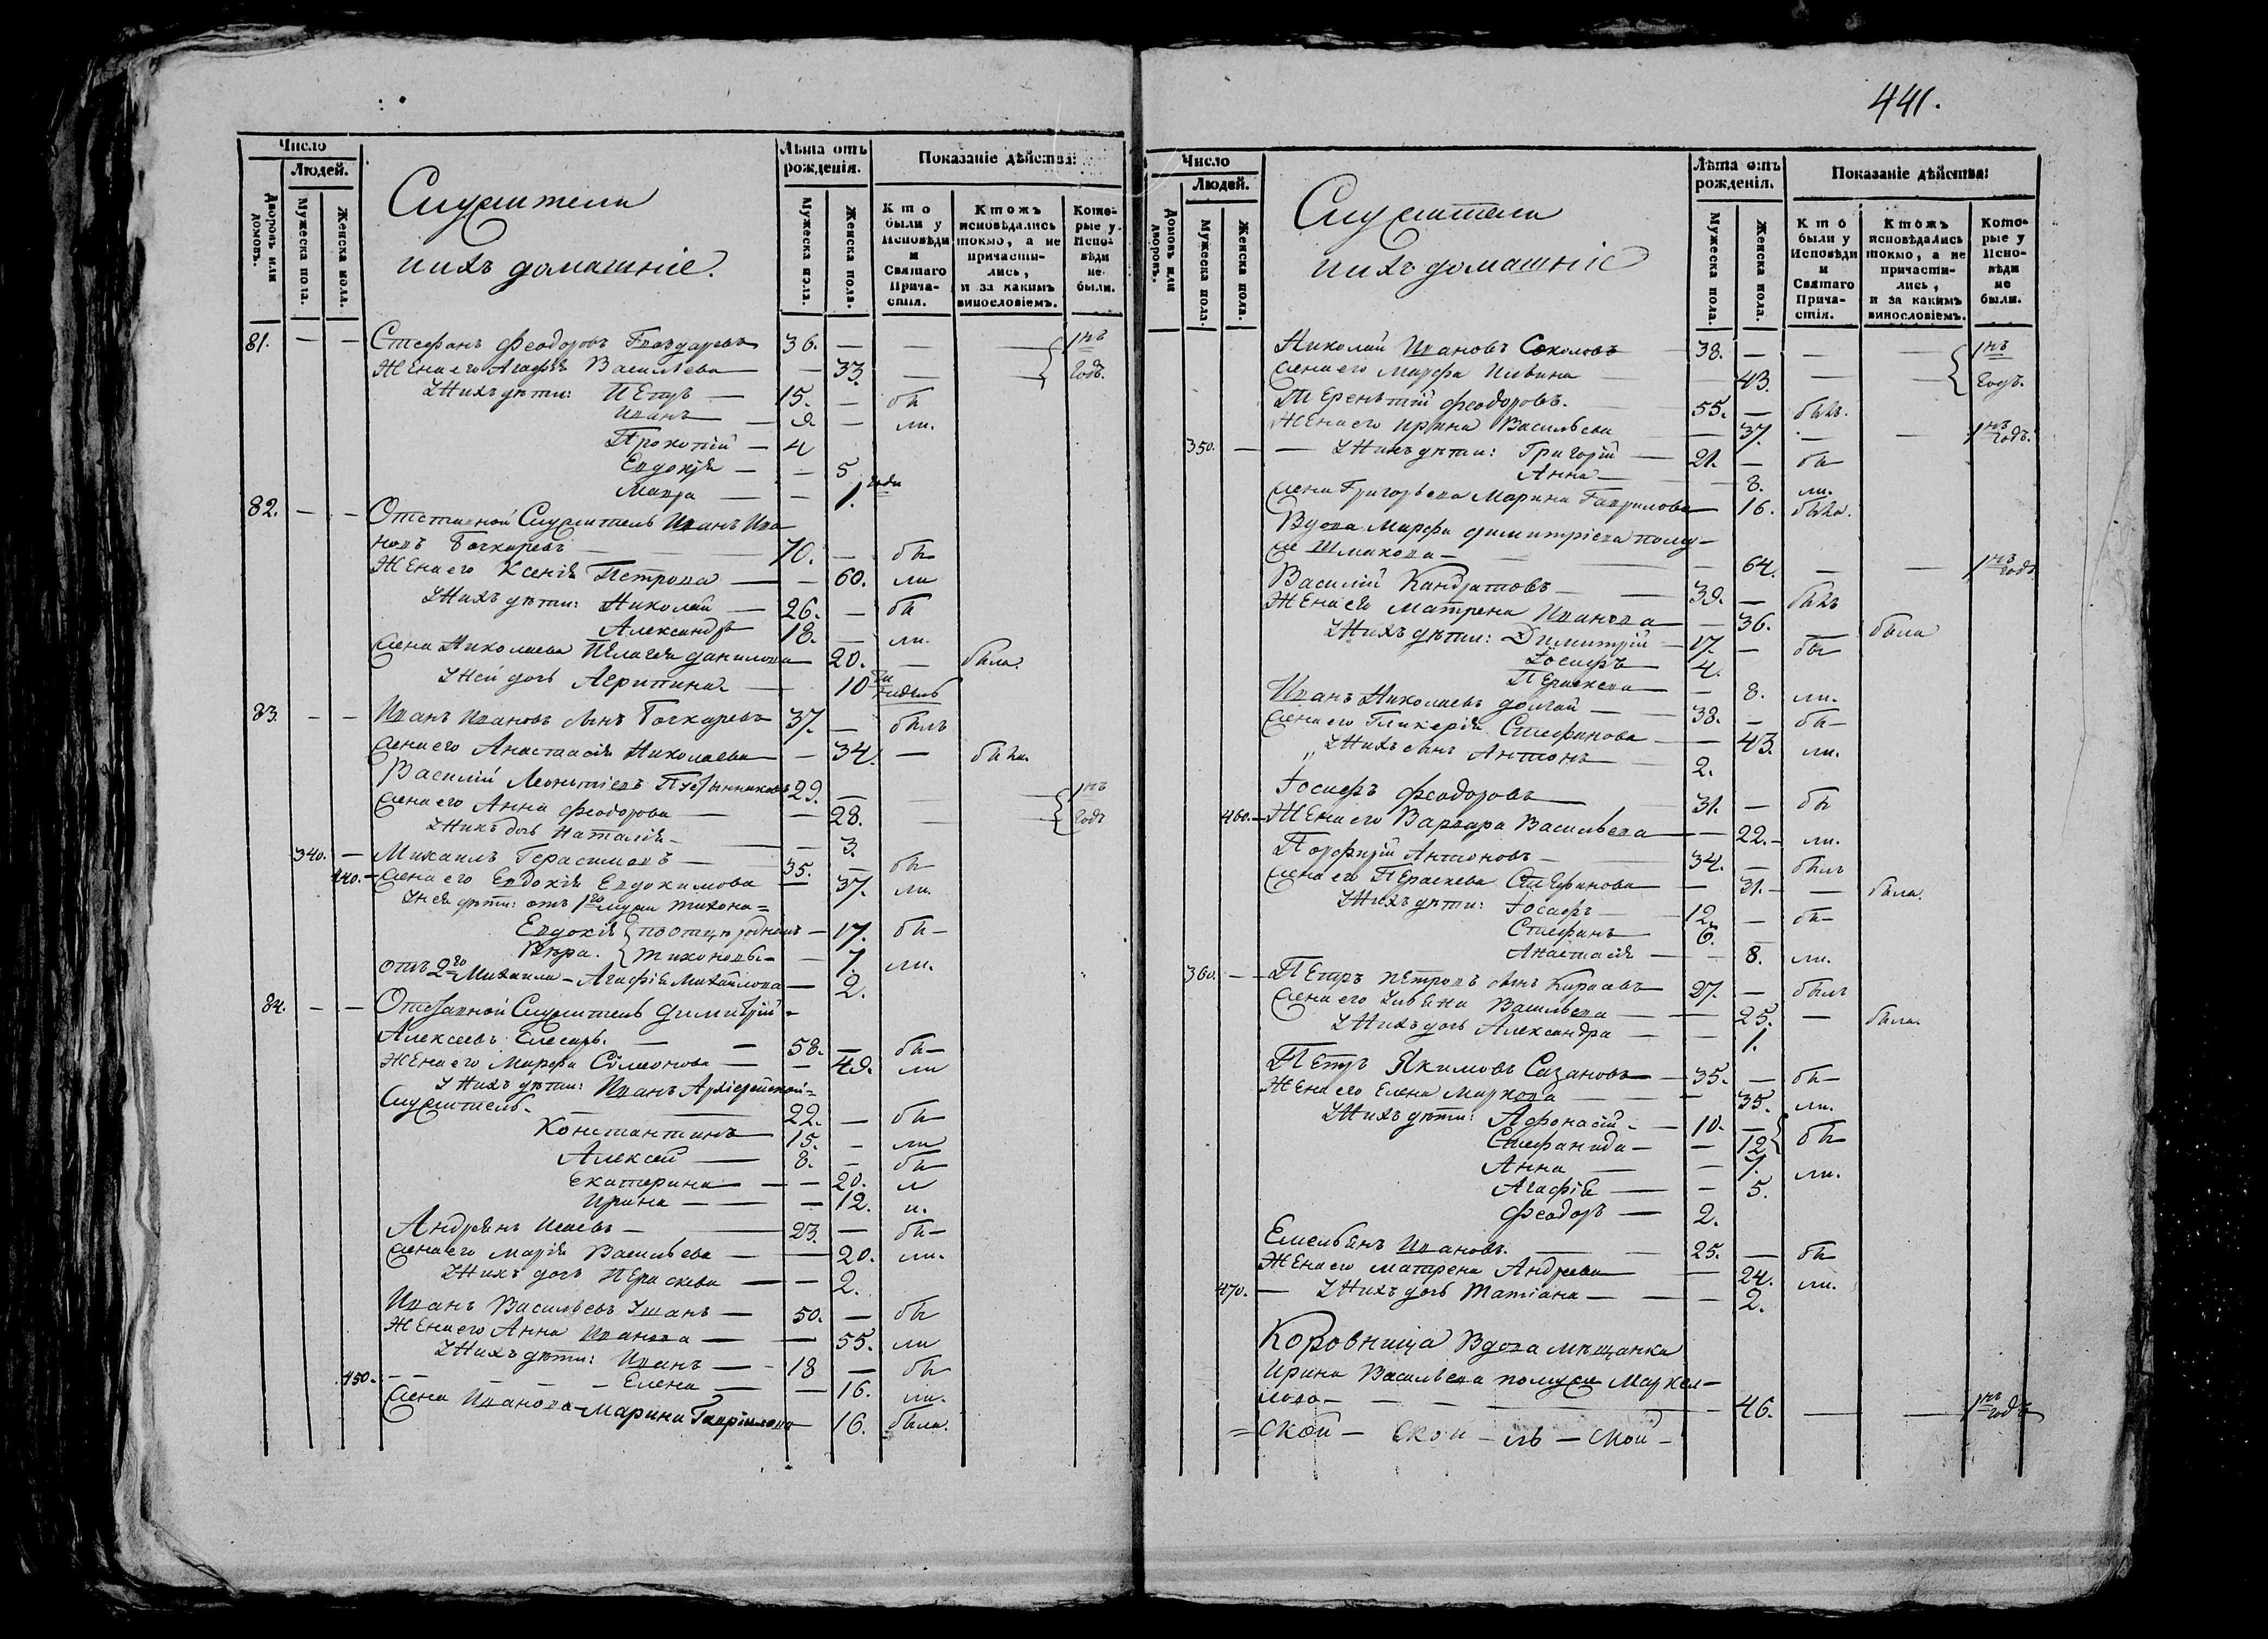 441.
Число
Людей.
Дворовъ или домовъ.
Мужеска пола.
Женска пола.
Служители
и ихъ домашніе.
Лѣта отъ рожденія.
Мужеска пола.
Женска пола.
Показаніе дѣйства:
Кто были у Исповѣди и Святаго Прича-стія.
Ктожъ исповѣдались токмо, а не причасти-лись, и за какимъ винословіемъ.
Кото-рые у Испо-вѣди не были.
81. — — Стефанъ Феодоровъ 36. — — — 1нъ
Жена его Агафія Васильева — 33. — — годъ.
У нихъ дѣти: Петръ — 15. — бы
Иванъ — 9 — ли.
Прокопій — 4
Евдокія — — 5
Мавра — — 1. года
82. — — Отставной Служитель Иванъ Ива
новъ Бочкаревъ — 70. — бы
Жена его Ксенія Петрова — — 60. ли
У нихъ дѣти: Николай — 26. — бы
Александръ 18. — ли.
Жена Николаева Пелагея Данилова 20. — была.
У ней дочь Агрипина — 10ти недель
83. — — Иванъ Ивановъ сынъ Бочкаревъ 37. — былъ
Жена его Анастасія Николаева — 34. — была.
Василій Леонтіевъ 29. — — — 1нъ
Жена его Анна Феодорова — — 28. — — годъ
У нихъ дочь Наталія — — 3.
340. — Михаилъ Герасимовъ — 35. — бы
440. — Жена его Евдокія Евдокимова — 37. ли.
У нея дѣти: отъ 1го мужа Тихона =
Евдокія { по отцѣ родномъ — 17. бы —
Вѣра. { Тихоновы — — 7. ли.
отъ 2го Михаила — Агафія Михайлова — 2.
84. — — Отставной Служитель Димитрій =
Алексеевъ Слесарь. — — 58. — бы —
Жена его Марфа Симеонова — — 49. ли
У нихъ дѣти: Иванъ Архіерейской =
Служитель. — 22. — бы
Константинъ 15. — ли
Алексей — 8. — бы
Екатерина — — 20. л
Ирина — — — 12. и.
Андреянъ Исаевъ — 23. — бы —
Жена его Марія Васильева — — 20. ли.
У нихъ дочь Параскева — — 2.
Иванъ Васильевъ Ушанъ — 50. — бы
Жена его Анна Иванова — — 55. ли
У нихъ дѣти: Иванъ — 18 — бы
450. — — — Елена — — 16. ли.
Жена Иванова — Марина Гавріилова 16. была.
Число
Людей.
Домовъ или дворовъ.
Мужеска пола.
Женска пола.
Служители
и ихъ домашніе
Лѣта отъ рожденія.
Мужеска пола.
Женска пола.
Показаніе дѣйства:
Кто были у Исповѣди и Святаго Прича-стія.
Ктожъ исповѣдались токмо, а не причасти-лись, и за какимъ винословіемъ.
Кото-рые у Испо-вѣди не были.
Николай Ивановъ Соколовъ 38. — — — 1нъ
Жена его Марфа 43. — — годъ.
Терентій Феодоровъ. 55. — былъ.
Жена его Ирина Васильева — 37. — — 1нъ годъ.
350. — — У нихъ дѣти: Григорій — 21. — бы
Анна — — 8. ли.
Жена Григорьева Марина Гаврилова — 16. была.
Вдова Марфа Димитріева пому —
жѣ Шмакова — — 64. — — 1нъ годъ
Василій Кандратовъ — — 39. — былъ
Жена его Матрена Иванова — 36. — была
У нихъ дѣти: Димитрій — 17. — бы
Іосифъ — 4.
Параскева — 8. ли.
Иванъ Николаевъ Долгай — 38. — бы —
Жена его Гликерія Стефанова — 43. ли.
У нихъ сынъ Антонъ — 2.
Іосифъ Феодоровъ — 31. — бы
460. — Жена его Варвара Васильева — — 22. — ли.
Порфирій Антоновъ — 34. — былъ
Жена его Параскева Стефанова — 31. — — была.
У нихъ дѣти: Іосифъ — 12. — бы —
Стефанъ 6.
Анастасія — — 8. ли.
360. — — Петръ Петровъ сынъ 27. — былъ
Жена его Уліяна Васильева — — 25. — была.
У нихъ дочь Александра — — 1.
Петръ Якимовъ Сазановъ — 35. — бы —
Жена его Елена Маркова — — 35. ли.
У нихъ дѣти: Афонасій — 10. —
Стефанида — — 12 } бы
Анна — — 7. ли.
Агафія — — 5.
Феодоръ — 2.
Емельянъ Ивановъ. — 25. — бы
Жена его Матрена Андреева — 24. ли.
470. — У нихъ дочь Татіана — — — 2.
Коровница Вдова мѣщанка
Ирина Васильева помужѣ Маркел —
лова — — — 46. — — 1нъ годъ
= ской — ской — ль — ской —